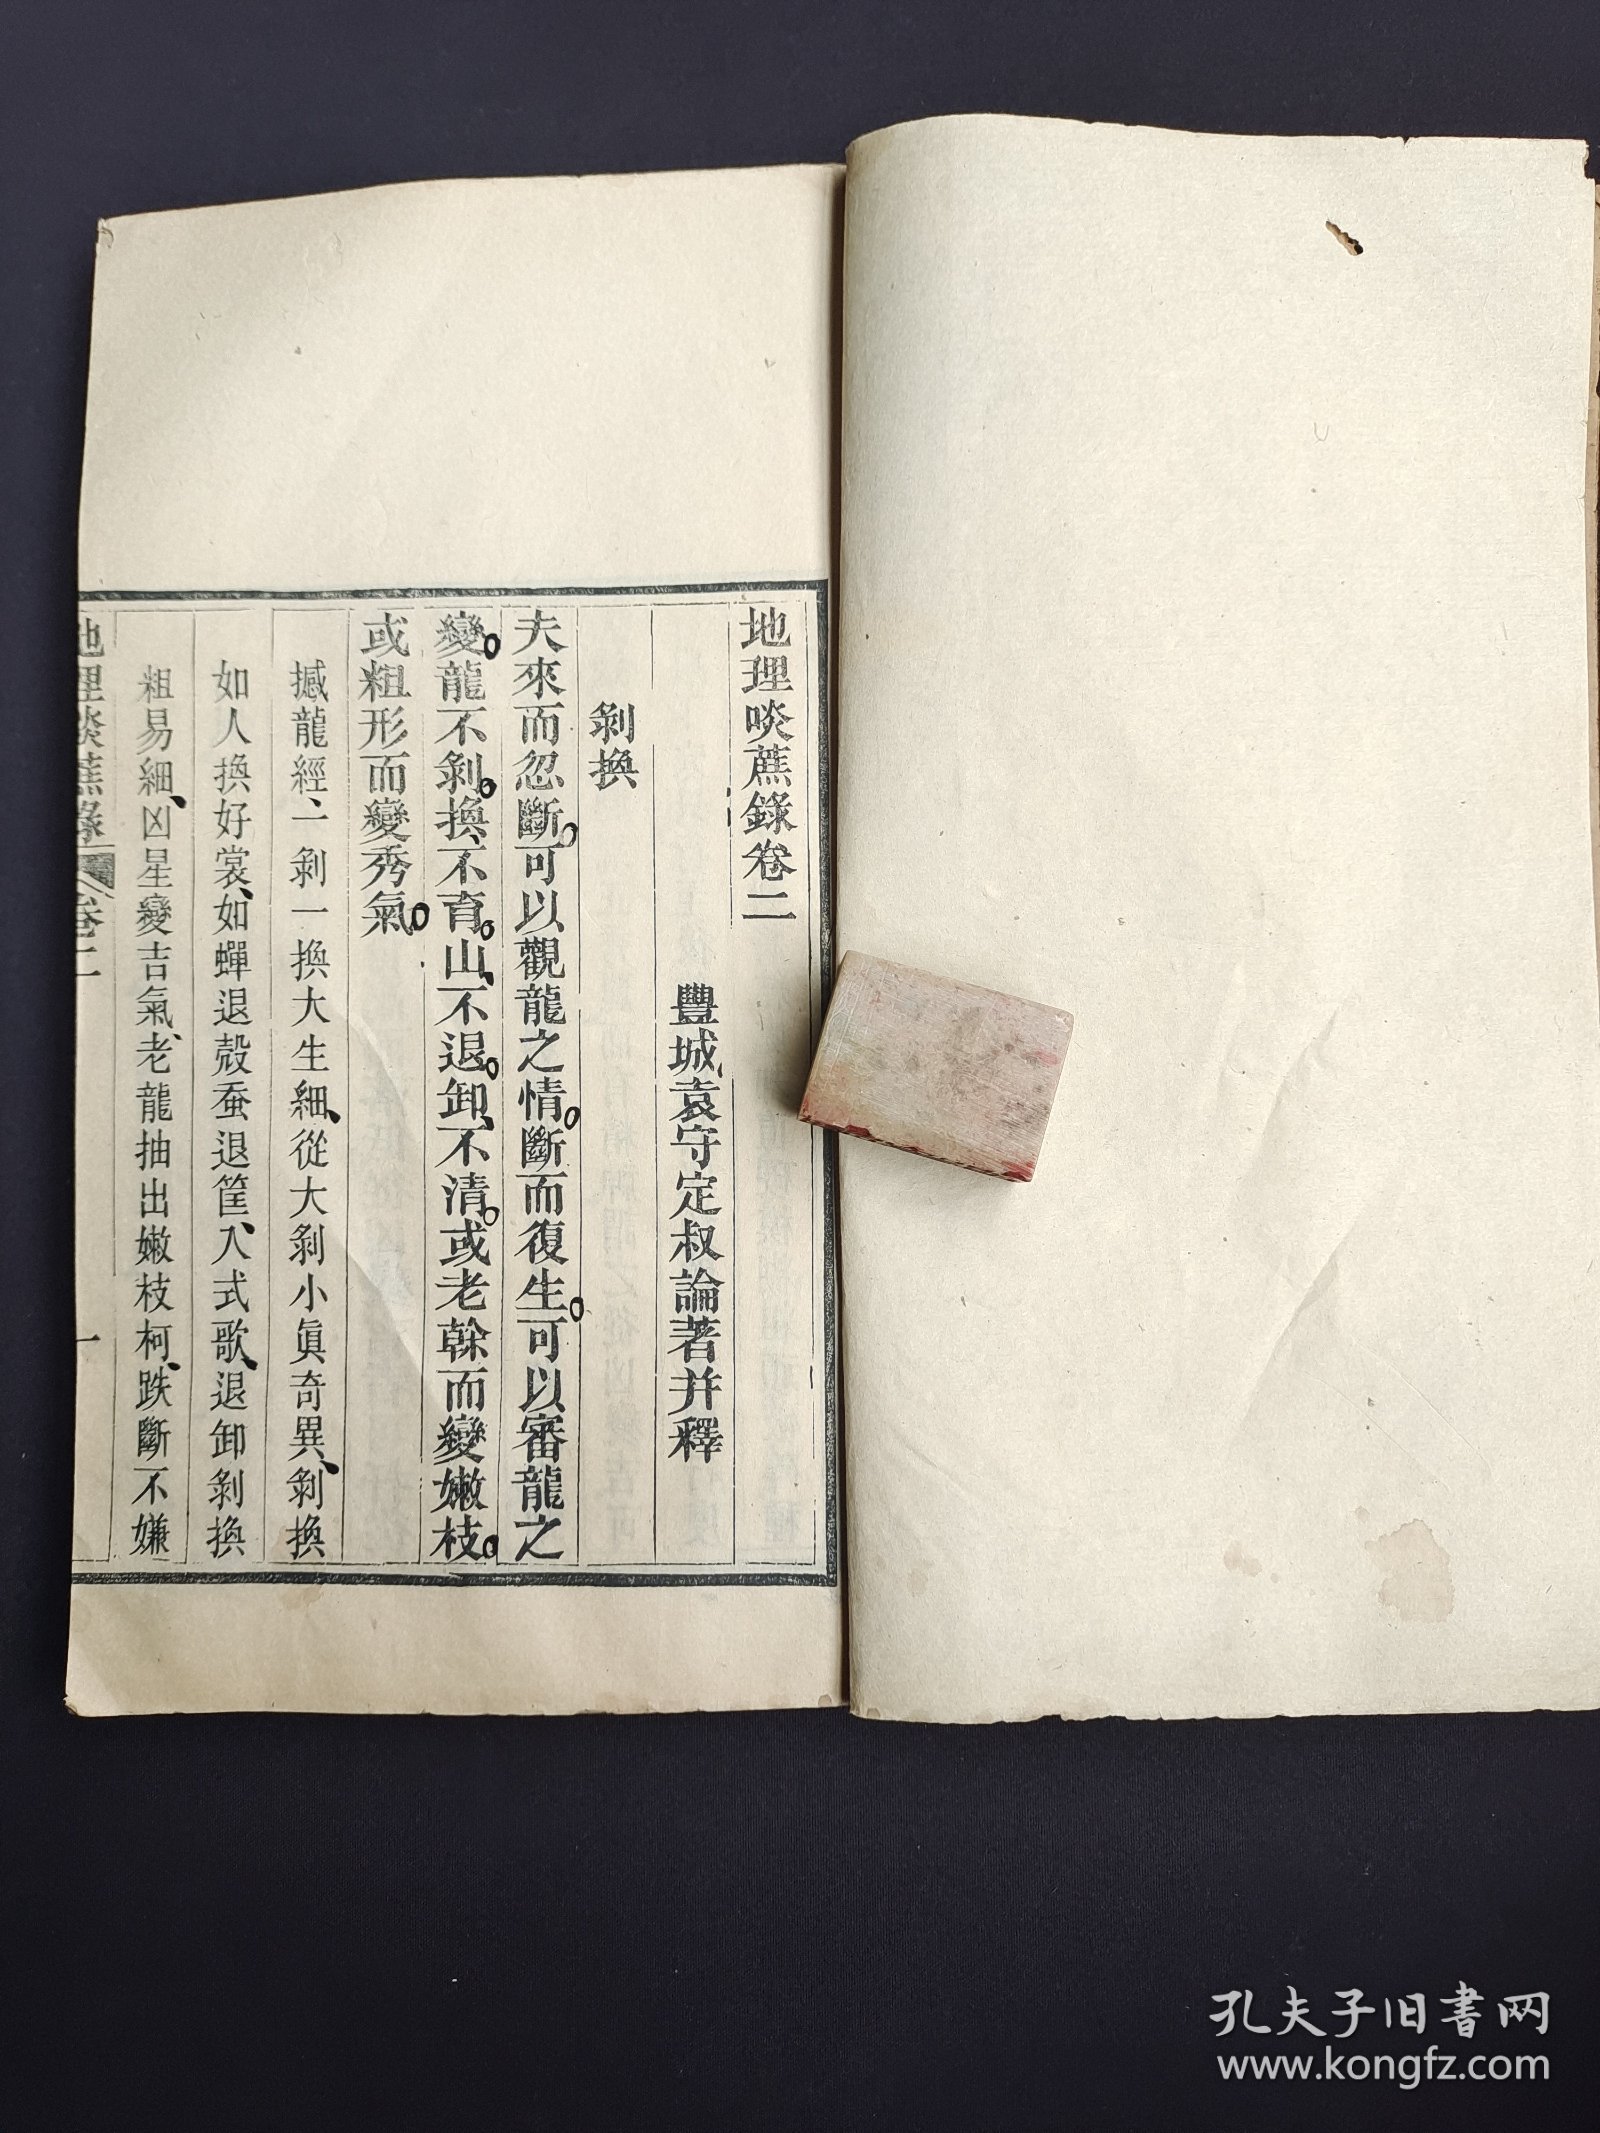 地理啖蔗錄卷二
豐城袁守定叔論著并釋
剝換
夫來而忽斷。可以觀龍之情。斷而復生。可以審龍之
變。龍不剝。換、不育。山、不退。卸、不清。或老榦而變嫩枝。
或粗形而變秀氣。
撼龍經、一剝一換大生細、從大剝小眞奇異、剝換
如人換好裳、如蟬退殼蚕退筐、入式歌、退卸剝換
粗易細、凶星變吉氣、老龍抽出嫩枝柯、跌斷不嫌
地理啖蔗錄 卷二 一
孔夫子旧書网
www.kongfz.com